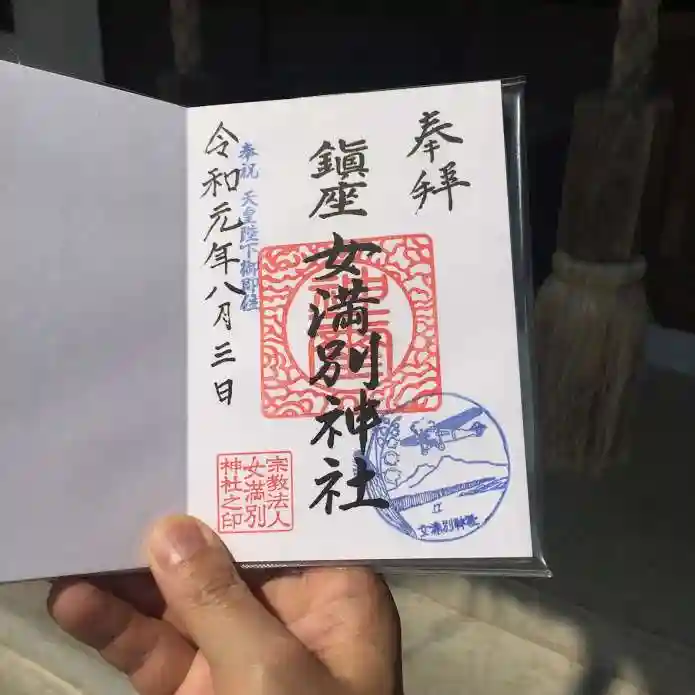 奉拝
鎮座 女満別神社
奉祝 天皇陛下御即位
令和元年八月三日
宗教法人
女満別
神社之印
女満別神社